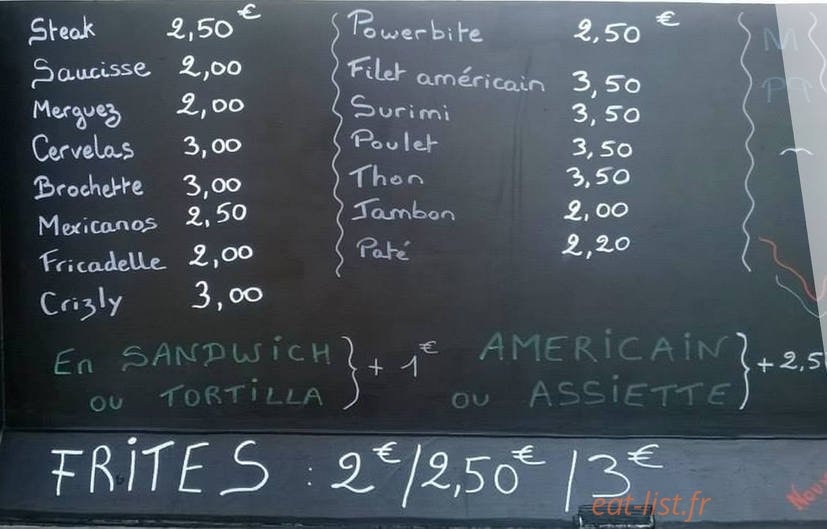 Steak 2,50€
Saucisse 2,00
Merguez 2,00
Cervelas 3,00
Brochette 3,00
Mexicanos 2,50
Fricadelle 2,00
Crizly 3,00
Powerbite 2,50 €
Filet américain 3,50
Surimi 3,50
Poulet 3,50
Thon 3,50
Jambon 2,00
Paté 2,20
En SANDWiCH
ou TORTiLLA } + 1€
AMERiCAiN
ou ASSiETTE } + 2,5
FRiTES : 2€/2,50€/3€
eat-list.fr